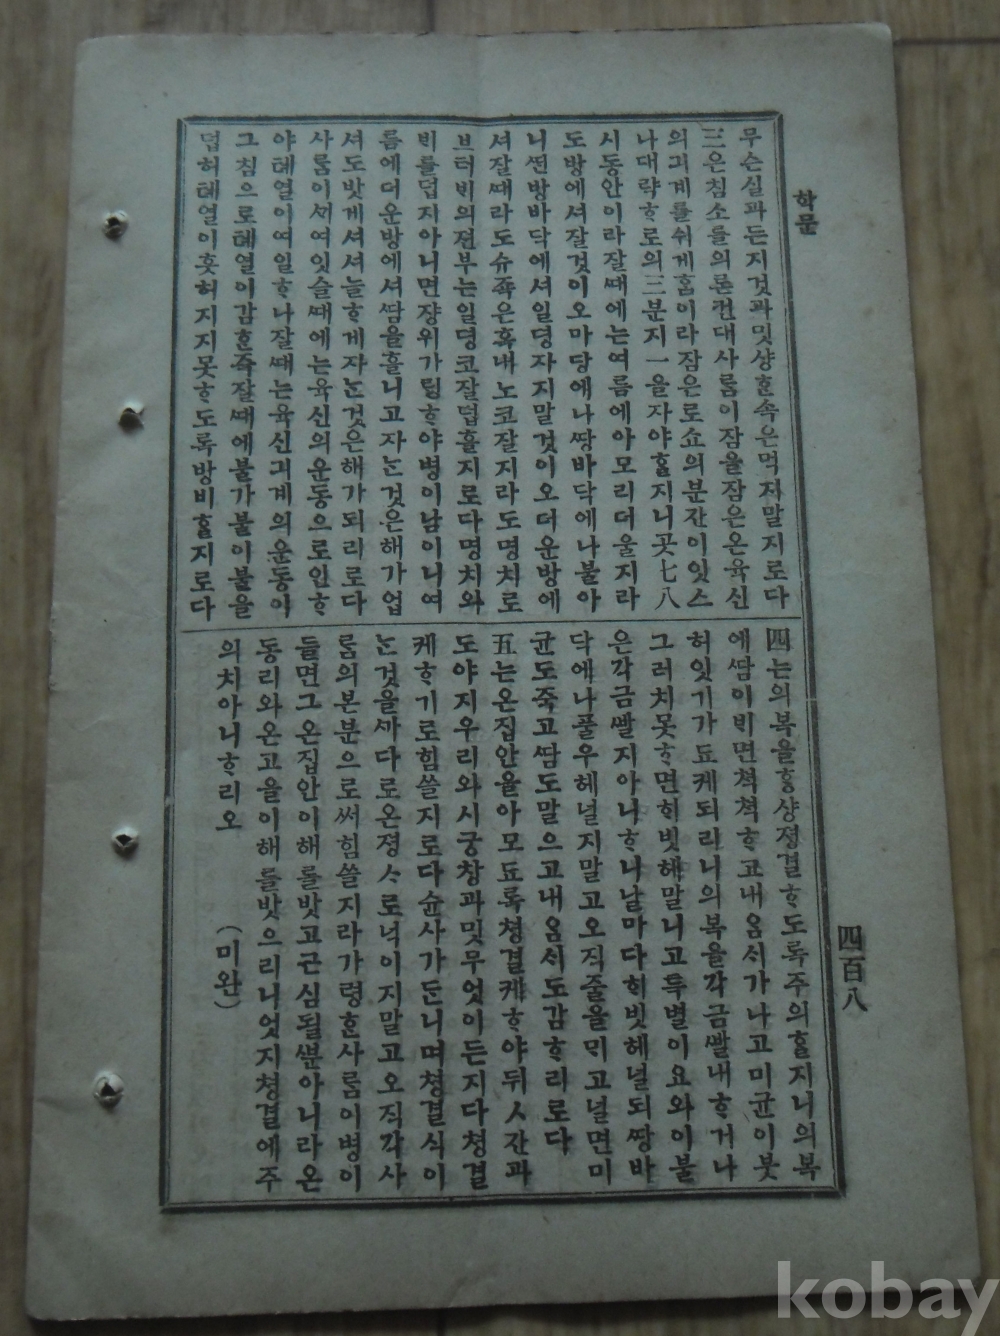 학문
무슨실과든지것과밋샹ᄒᆞᆫ속은먹지말지로다
三은침소를의론컨대사ᄅᆞᆷ이잠을잠은온육신
의긔계를쉬게홈이라잠은로쇼의분간이잇스
나대략ᄒᆞ로의三분지一을자야ᄒᆞᆯ지니곳七八
시동안이라잘ᄯᅢ에는여름에아모리더울지라
도방에셔잘것이오마당에나ᄯᅡᆼ바닥에나불아
니ᄯᅥᆫ방바닥에셔일뎡자지말것이오더운방에
셔잘ᄯᅢ라도슈죡은혹내노코잘지라도명치로
브터ᄇᆡ의젼부는일뎡코잘덥흘지로다명치와
ᄇᆡ를덥지아니면쟝위가ᄅᆡᆼᄒᆞ야병이남이니여
름에더운방에셔ᄯᅡᆷ을흘니고자ᄂᆞᆫ것은해가업
셔도밧게셔셔늘ᄒᆞ게자ᄂᆞᆫ것은해가되리로다
사ᄅᆞᆷ이ᄭᆡ여잇슬ᄯᅢ에는육신의운동으로인ᄒᆞ
야톄열이여일ᄒᆞ나잘ᄯᅢ는육신긔계의운동이
그침으로톄열이감ᄒᆞᆫ즉잘ᄯᅢ에불가불이불을
덥허톄열이흣허지지못ᄒᆞ도록방비ᄒᆞᆯ지로다
四는의복을ᄒᆞᆼ샹졍결ᄒᆞ도록주의ᄒᆞᆯ지니의복
에ᄯᅡᆷ이ᄇᆡ면쳑쳑ᄒᆞ고내옴ᄉᆡ가나고미균이붓
허잇기가됴케되리니의복을각금ᄲᅡᆯ내ᄒᆞ거나
그러치못ᄒᆞ면ᄒᆡ빗헤말니고특별이요와이불
은각금ᄲᅡᆯ지아니ᄒᆞ니날마다ᄒᆡ빗헤널되ᄯᅡᆼ바
닥에나풀우헤널지말고오직줄을ᄆᆡ고널면미
균도죽고ᄯᅡᆷ도말으고내옴ᄉᆡ도감ᄒᆞ리로다
五는온집안을아모됴록졍결케ᄒᆞ야뒤ㅅ간과
도야지우리와시궁창과밋무엇이든지다졍결
케ᄒᆞ기로힘쓸지로다슌사가ᄃᆞᆫ니며쳥결식이
ᄂᆞᆫ것을ᄭᅡ다로온졍ᄉᆞ로녁이지말고오직각사
ᄅᆞᆷ의본분으로써힘쓸지라가령ᄒᆞᆫ사ᄅᆞᆷ이병이
들면그온집안이해를밧고근심될ᄲᅮᆫ아니라온
동리와온고을이해를밧으리니엇지쳥결에주
의치아니ᄒᆞ리오
(미완)
四百八
kobay